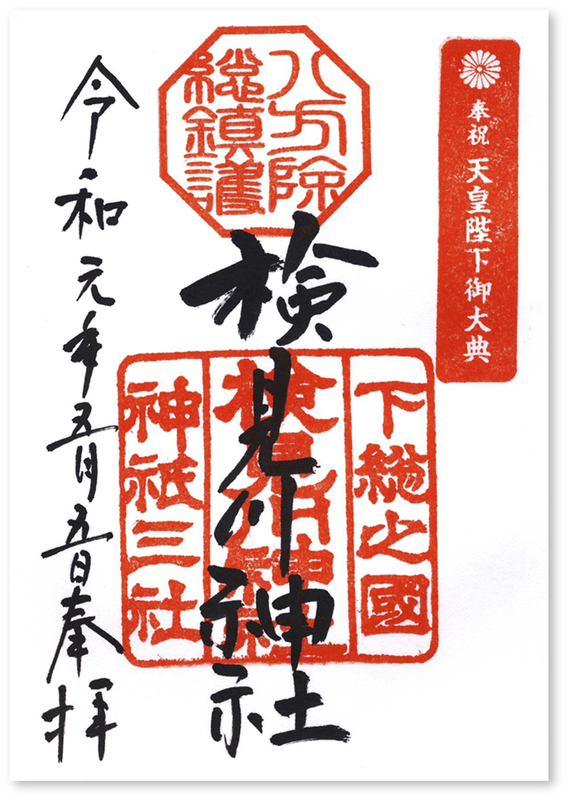 奉祝 天皇陛下御大典
八方除
総鎮護
検見川神社
下総之國
検見川神社
神祇三社
令和元年五月五日奉拝